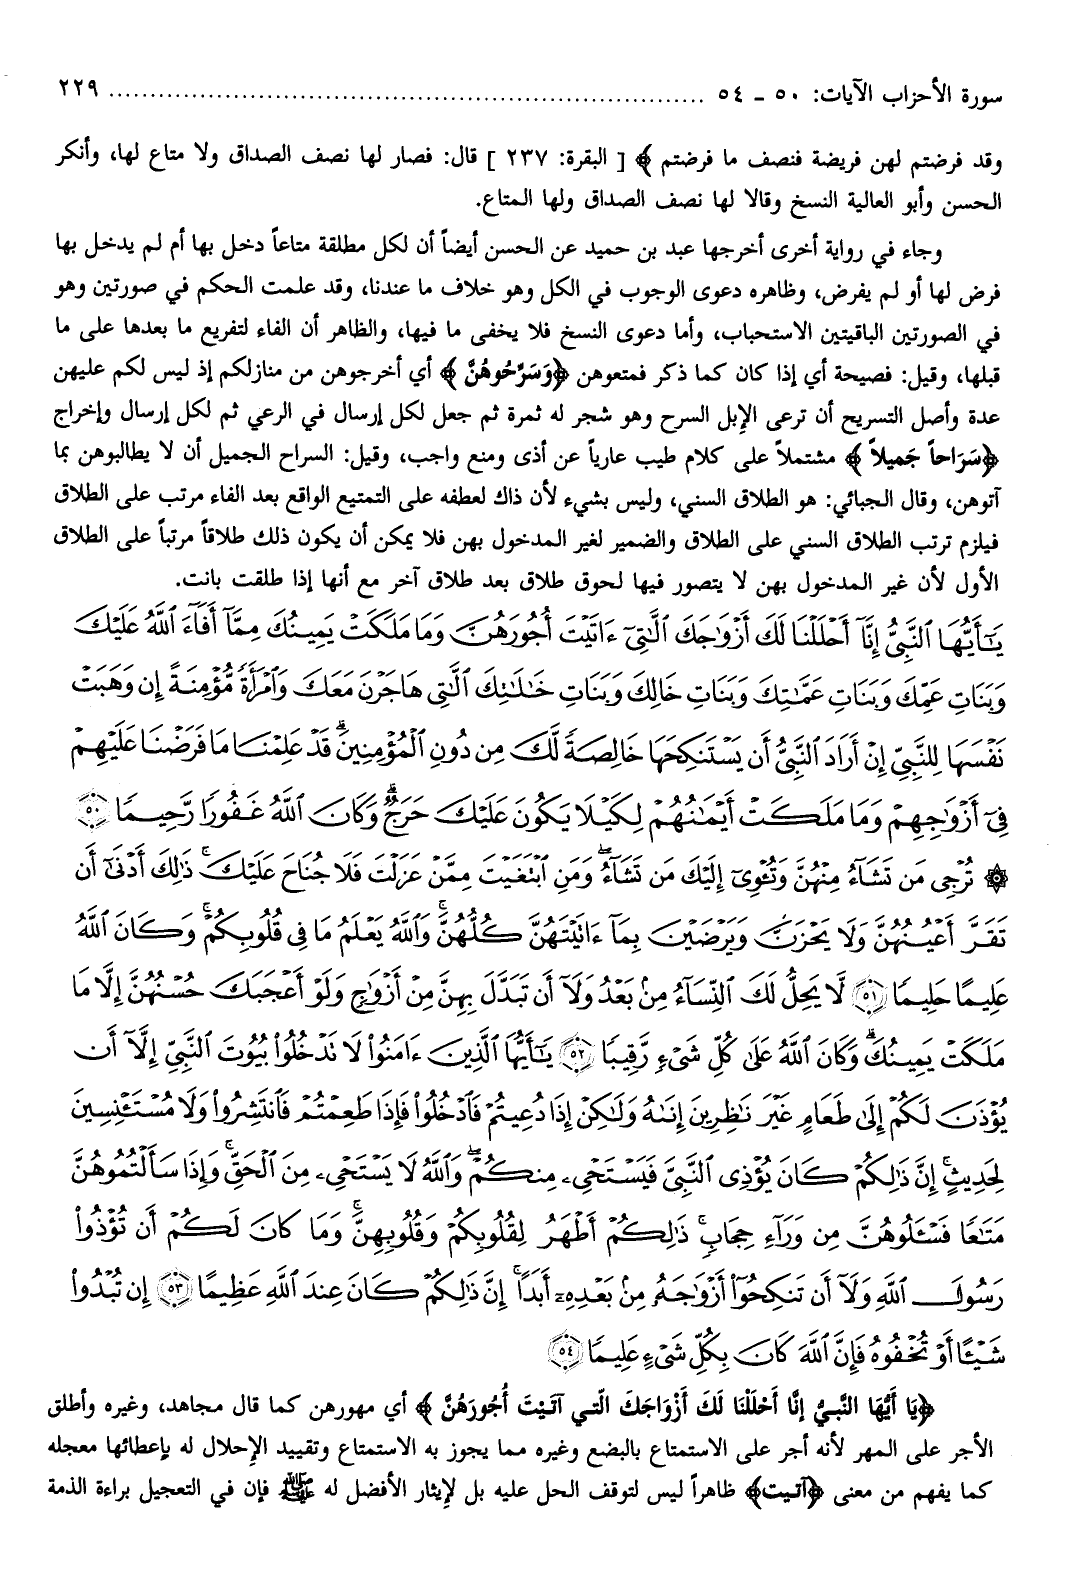 سورة الأحزاب الآيات: ٥٠ - ٥٤ ........................................................................ ٢٢٩
وقد فرضتم لهن فريضة فنصف ما فرضتم ﴾ [ البقرة: ٢٣٧ ] قال: فصار لها نصف الصداق ولا متاع لها، وأنكر
الحسن وأبو العالية النسخ وقالا لها نصف الصداق ولها المتاع.
وجاء في رواية أخرى أخرجها عبد بن حميد عن الحسن أيضاً أن لكل مطلقة متاعاً دخل بها أم لم يدخل بها
فرض لها أو لم يفرض، وظاهره دعوى الوجوب في الكل وهو خلاف ما عندنا، وقد علمت الحكم في صورتين وهو
في الصورتين الباقيتين الاستحباب، وأما دعوى النسخ فلا يخفى ما فيها، والظاهر أن الفاء لتفريع ما بعدها على ما
قبلها، وقيل: فصيحة أي إذا كان كما ذكر فمتعوهن ﴿وَسَرِّحُوهُنَّ ﴾ أي أخرجوهن من منازلكم إذ ليس لكم عليهن
عدة وأصل التسريح أن ترعى الإبل السرح وهو شجر له ثمرة ثم جعل لكل إرسال في الرعي ثم لكل إرسال وإخراج
﴿سَرَاحاً جَمِيلاً ﴾ مشتملاً على كلام طيب عارياً عن أذى ومنع واجب، وقيل: السراح الجميل أن لا يطالبوهن بما
آتوهن، وقال الجبائي: هو الطلاق السني، وليس بشيء لأن ذاك لعطفه على التمتيع الواقع بعد الفاء مرتب على الطلاق
فيلزم ترتب الطلاق السني على الطلاق والضمير لغير المدخول بهن فلا يمكن أن يكون ذلك طلاقاً مرتباً على الطلاق
الأول لأن غير المدخول بهن لا يتصور فيها لحوق طلاق بعد طلاق آخر مع أنها إذا طلقت بانت.
يَٰٓأَيُّهَا ٱلنَّبِىُّ إِنَّآ أَحْلَلْنَا لَكَ أَزْوَٰجَكَ ٱلَّٰتِىٓ ءَاتَيْتَ أُجُورَهُنَّ وَمَا مَلَكَتْ يَمِينُكَ مِمَّآ أَفَآءَ ٱللَّهُ عَلَيْكَ
وَبَنَاتِ عَمِّكَ وَبَنَاتِ عَمَّٰتِكَ وَبَنَاتِ خَالِكَ وَبَنَاتِ خَٰلَٰتِكَ ٱلَّٰتِى هَاجَرْنَ مَعَكَ وَٱمْرَأَةً مُّؤْمِنَةً إِن وَهَبَتْ
نَفْسَهَا لِلنَّبِىِّ إِنْ أَرَادَ ٱلنَّبِىُّ أَن يَسْتَنكِحَهَا خَالِصَةً لَّكَ مِن دُونِ ٱلْمُؤْمِنِينَ ۗ قَدْ عَلِمْنَا مَا فَرَضْنَا عَلَيْهِمْ
فِىٓ أَزْوَٰجِهِمْ وَمَا مَلَكَتْ أَيْمَٰنُهُمْ لِكَيْلَا يَكُونَ عَلَيْكَ حَرَجٌ ۗ وَكَانَ ٱللَّهُ غَفُورًا رَّحِيمًا ٥٠
۞ تُرْجِى مَن تَشَآءُ مِنْهُنَّ وَتُـْٔوِىٓ إِلَيْكَ مَن تَشَآءُ ۖ وَمَنِ ٱبْتَغَيْتَ مِمَّنْ عَزَلْتَ فَلَا جُنَاحَ عَلَيْكَ ۚ ذَٰلِكَ أَدْنَىٰٓ أَن
تَقَرَّ أَعْيُنُهُنَّ وَلَا يَحْزَنَّ وَيَرْضَيْنَ بِمَآ ءَاتَيْتَهُنَّ كُلُّهُنَّ ۚ وَٱللَّهُ يَعْلَمُ مَا فِى قُلُوبِكُمْ ۚ وَكَانَ ٱللَّهُ
عَلِيمًا حَلِيمًا ٥١ لَّا يَحِلُّ لَكَ ٱلنِّسَآءُ مِنۢ بَعْدُ وَلَآ أَن تَبَدَّلَ بِهِنَّ مِنْ أَزْوَٰجٍ وَلَوْ أَعْجَبَكَ حُسْنُهُنَّ إِلَّا مَا
مَلَكَتْ يَمِينُكَ ۗ وَكَانَ ٱللَّهُ عَلَىٰ كُلِّ شَىْءٍ رَّقِيبًا ٥٢ يَٰٓأَيُّهَا ٱلَّذِينَ ءَامَنُوا۟ لَا تَدْخُلُوا۟ بُيُوتَ ٱلنَّبِىِّ إِلَّآ أَن
يُؤْذَنَ لَكُمْ إِلَىٰ طَعَامٍ غَيْرَ نَٰظِرِينَ إِنَىٰهُ وَلَٰكِنْ إِذَا دُعِيتُمْ فَٱدْخُلُوا۟ فَإِذَا طَعِمْتُمْ فَٱنتَشِرُوا۟ وَلَا مُسْتَـْٔنِسِينَ
لِحَدِيثٍ ۚ إِنَّ ذَٰلِكُمْ كَانَ يُؤْذِى ٱلنَّبِىَّ فَيَسْتَحْىِۦ مِنكُمْ ۖ وَٱللَّهُ لَا يَسْتَحْىِۦ مِنَ ٱلْحَقِّ ۚ وَإِذَا سَأَلْتُمُوهُنَّ
مَتَٰعًا فَسْـَٔلُوهُنَّ مِن وَرَآءِ حِجَابٍ ۚ ذَٰلِكُمْ أَطْهَرُ لِقُلُوبِكُمْ وَقُلُوبِهِنَّ ۚ وَمَا كَانَ لَكُمْ أَن تُؤْذُوا۟
رَسُولَ ٱللَّهِ وَلَآ أَن تَنكِحُوٓا۟ أَزْوَٰجَهُۥ مِنۢ بَعْدِهِۦٓ أَبَدًا ۚ إِنَّ ذَٰلِكُمْ كَانَ عِندَ ٱللَّهِ عَظِيمًا ٥٣ إِن تُبْدُوا۟
شَيْـًٔا أَوْ تُخْفُوهُ فَإِنَّ ٱللَّهَ كَانَ بِكُلِّ شَىْءٍ عَلِيمًا ٥٤
﴿يَا أَيُّهَا النَّبِيُّ إِنَّا أَحْلَلْنَا لَكَ أَزْوَاجَكَ الَّتِي آتَيْتَ أُجُورَهُنَّ ﴾ أي مهورهن كما قال مجاهد، وغيره وأطلق
الأجر على المهر لأنه أجر على الاستمتاع بالبضع وغيره مما يجوز به الاستمتاع وتقييد الإحلال له بإعطائها معجله
كما يفهم من معنى ﴿آتيت﴾ ظاهراً ليس لتوقف الحل عليه بل لإيثار الأفضل له ﷺ فإن في التعجيل براءة الذمة